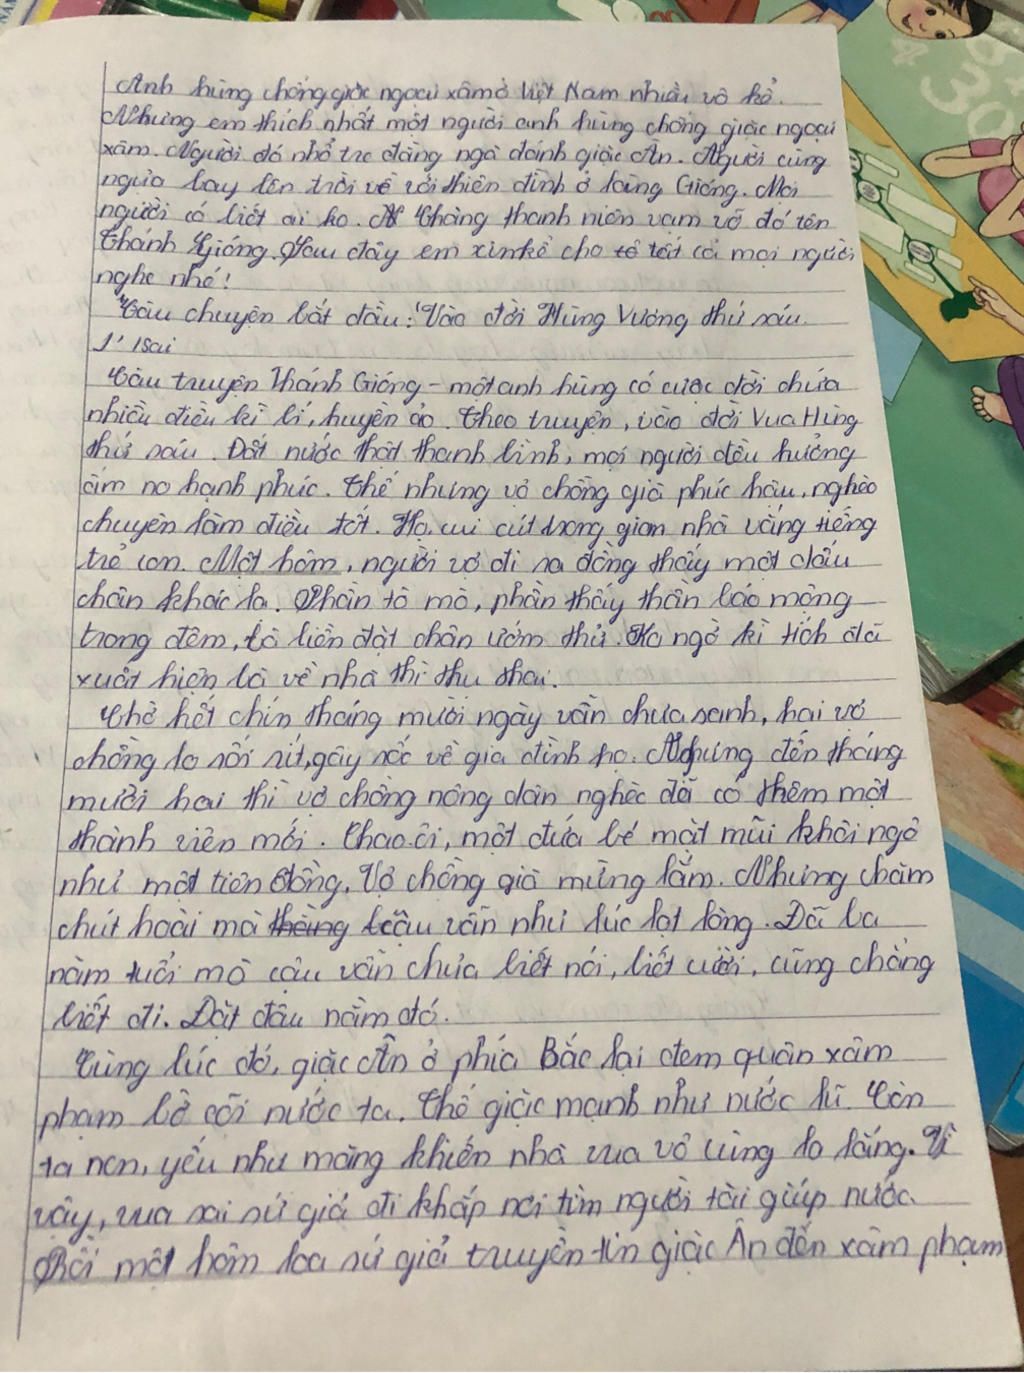 Anh hùng chống giặc ngoại xâm ở Việt Nam nhiều vô kể.
Nhưng em thích nhất một người anh hùng chống giặc ngoại
xâm. Người đó nhổ tre đằng ngà đánh giặc Ân. Người cùng
ngựa bay lên trời về với thiên đình ở làng Gióng. Mọi
người có biết ai ko. Chàng thanh niên vạm vỡ đó tên
Thánh Gióng. Sau đây em xin kể cho tất cả mọi người
nghe nhé!
Câu chuyện bắt đầu: Vào đời Hùng Vương thứ sáu.
1sai
Câu truyện Thánh Gióng - một anh hùng có cuộc đời chứa
nhiều điều kì bí, huyền ảo. Theo truyện, vào đời Vua Hùng
thứ sáu. Đất nước thật thanh bình, mọi người đều hưởng
ấm no hạnh phúc. Thế nhưng vợ chồng già phúc hậu, nghèo
chuyên làm điều tốt. Họ cui cút trong gian nhà vắng tiếng
trẻ con. Một hôm, người vợ đi ra đồng thấy một dấu
chân khác lạ. Phần tò mò, phần thấy thần báo mộng
trong đêm, bà liền đặt chân ướm thử. Ko ngờ kì tích đã
xuất hiện bà về nhà thì thụ thai.
Chờ hết chín tháng mười ngày vẫn chưa sanh, hai vợ
chồng lo sốt sít, gây sốc về gia đình họ. Nhưng đến tháng
mười hai thì vợ chồng nông dân nghèo đã có thêm một
thành viên mới. Chao ôi, một đứa bé mặt mũi khôi ngô
như một tiên đồng. Vợ chồng già mừng lắm. Nhưng chăm
chút hoài mà thằng cậu vẫn như lúc lọt lòng. Đã ba
năm tuổi mà cậu vẫn chưa biết nói, biết cười, cũng chẳng
biết đi. Đặt đâu nằm đó.
Cùng lúc đó, giặc Ân ở phía Bắc lại đem quân xâm
phạm bờ cõi nước ta. Thế giặc mạnh như nước lũ. Còn
ta non, yếu như măng khiến nhà vua vô cùng lo lắng. Vì
vậy, vua sai sứ giả đi khắp nơi tìm người tài giúp nước.
Rồi một hôm loa sứ giả truyền tin giặc Ân đến xâm phạm